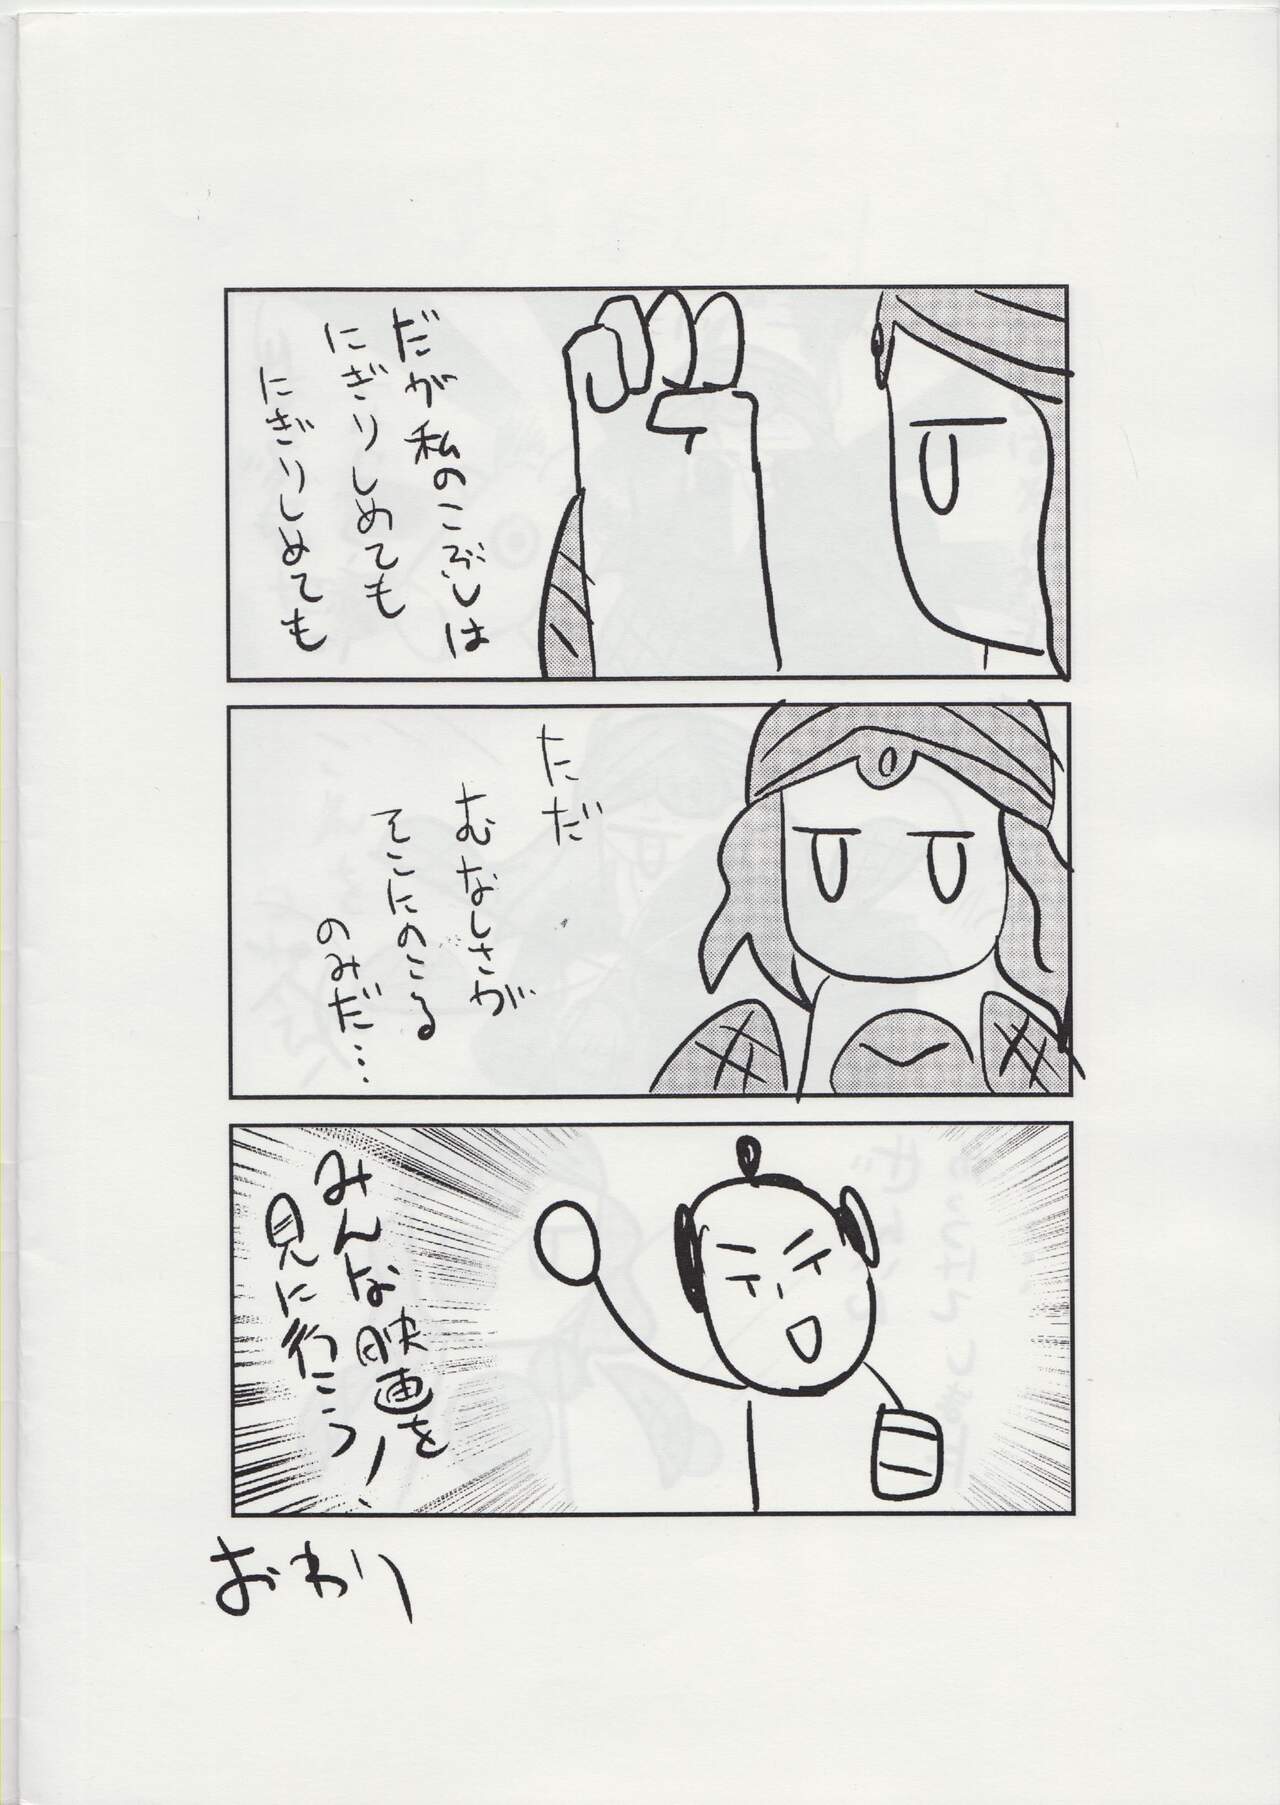 だが私のこぶしは
にぎりしめても
にぎりしめても
ただ
むなしさが
そこにのこる
のみだ…
みんな映画を
見に行こう!
おわり